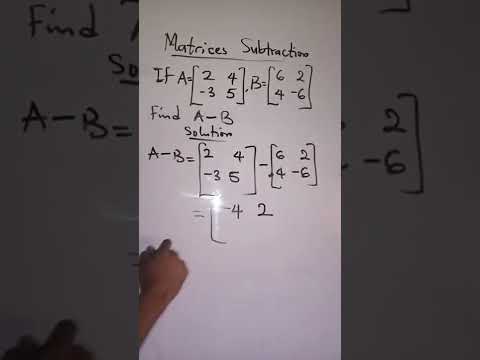 Matrices Subtraction
If A=[2 4 -3 5], B=[6 2 4 -6]
Find A-B
Solution
A-B=[2 4 -3 5]-[6 2 4 -6]
=[-4 2